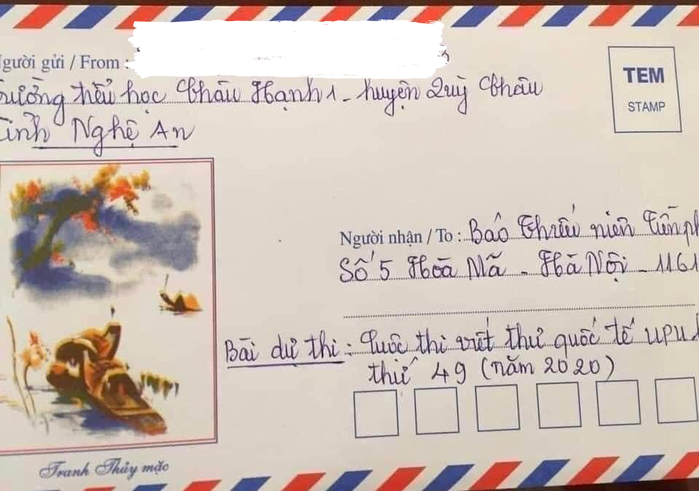 gười gửi / From :
rường tiểu học Châu Hạnh 1 - huyện Quỳ Châu
ỉnh Nghệ An
TEM
STAMP
Người nhận / To : Báo Thiếu niên Tiền ph
Số 5 Hoà Mã - Hà Nội - 1161
Bài dự thi : Cuộc thi viết thư quốc tế UPU l
thứ 49 (năm 2020)
Tranh Thủy mặc